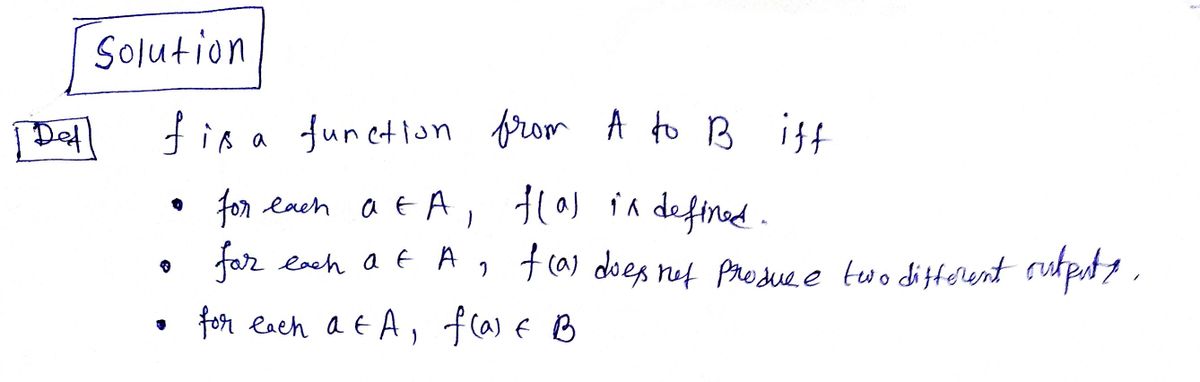 Solution
Def f is a function from A to B iff
• for each a ∈ A, f(a) is defined.
• for each a ∈ A, f(a) does not produce two different outputs.
• for each a ∈ A, f(a) ∈ B